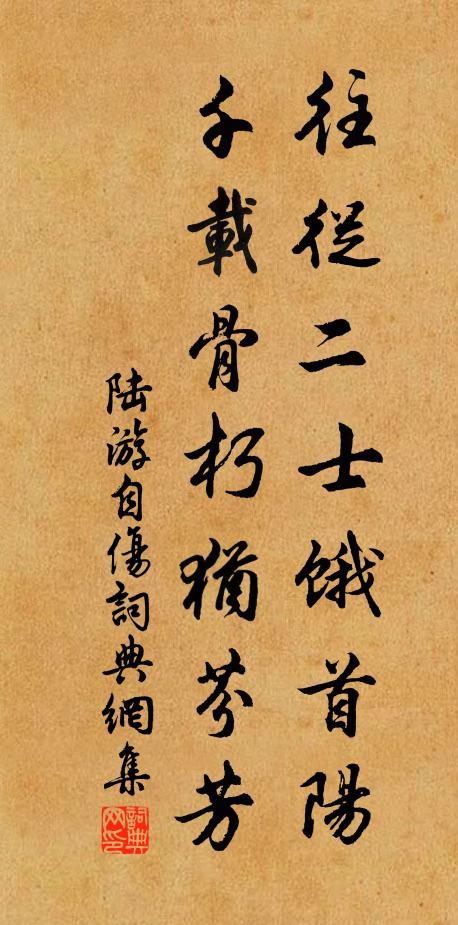 往從二士餓首陽
千載骨朽猶芬芳
陆游自傷詞典網集
詞典网印